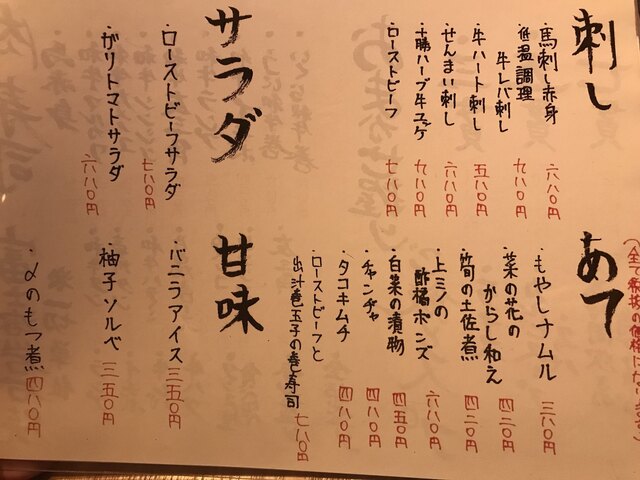 刺し
・馬刺し赤身 六八〇円
・低温調理
牛レバ刺し 九八〇円
・牛ハート刺し 五八〇円
・せんまい刺し 六八〇円
・十勝ハーブ牛ユッケ 九八〇円
・ローストビーフ 七八〇円
サラダ
・ローストビーフサラダ 七八〇円
・ガリトマトサラダ 六八〇円
あて
・もやしナムル 三八〇円
・菜の花の
からし和え 四二〇円
・筍の土佐煮 四二〇円
・上ミノの
酢橘ポンズ 六八〇円
・白菜の漬物 四五〇円
・チャンヂャ 四八〇円
・タコキムチ 四八〇円
・ローストビーフと
出汁巻玉子の巻寿司 七八〇円
甘味
・バニラアイス 三五〇円
・柚子ソルベ 三五〇円
・〆のもつ煮 四八〇円